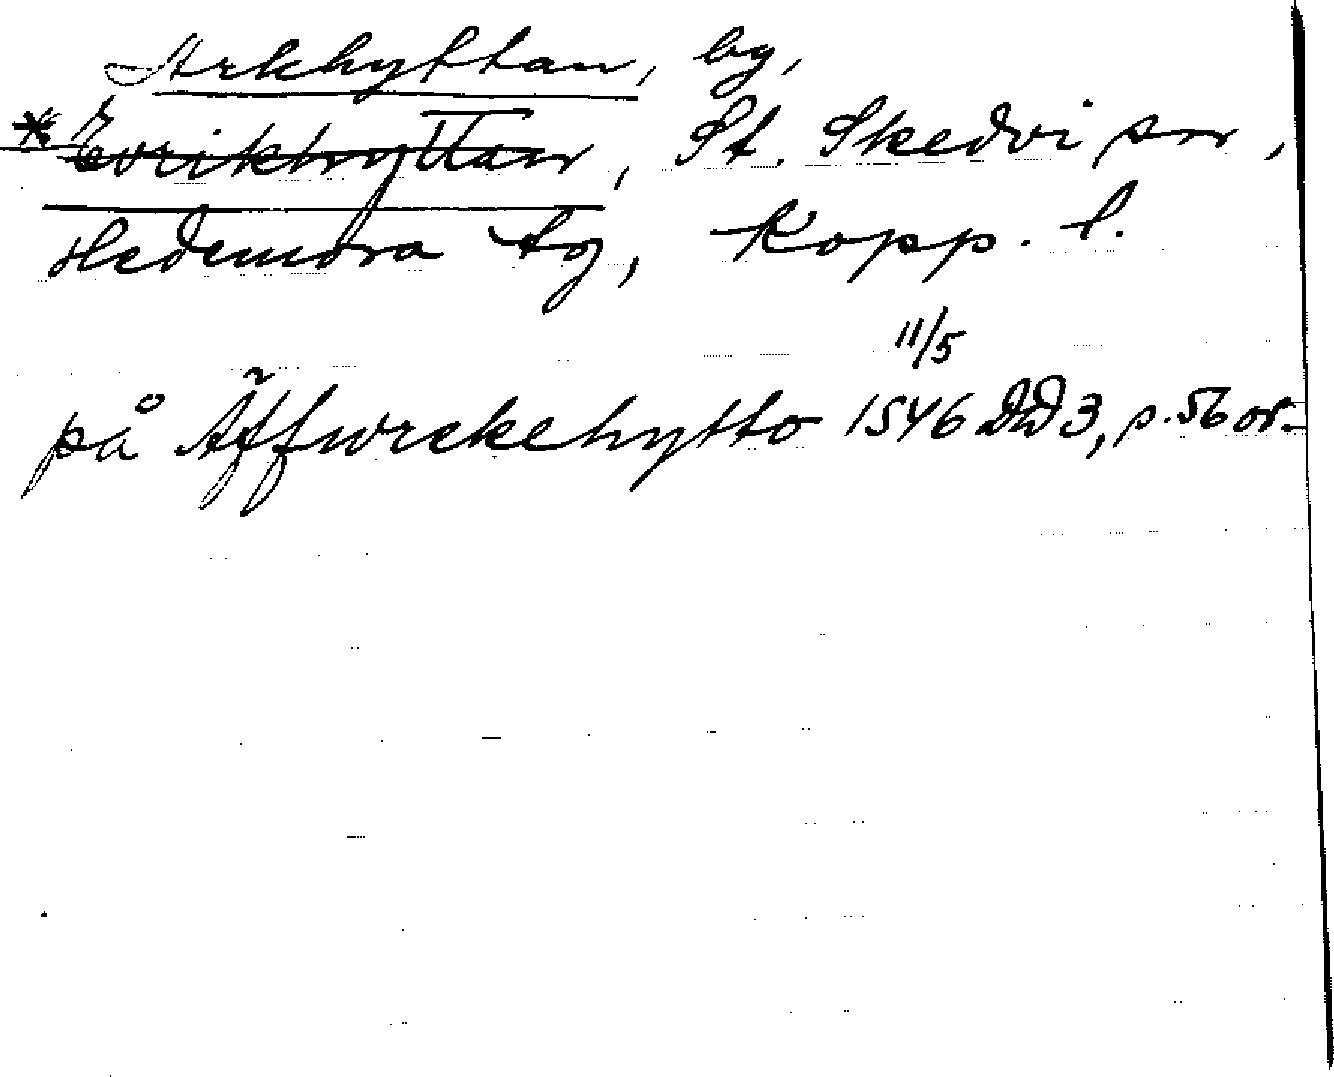 Arkhyttan, by,
* Evrikhyttan, St. Skedvi sn,
Hedemora tg, Kopp. l.
på Äffwrekehytto 11/5 1546 DD 3, p. 56 or.